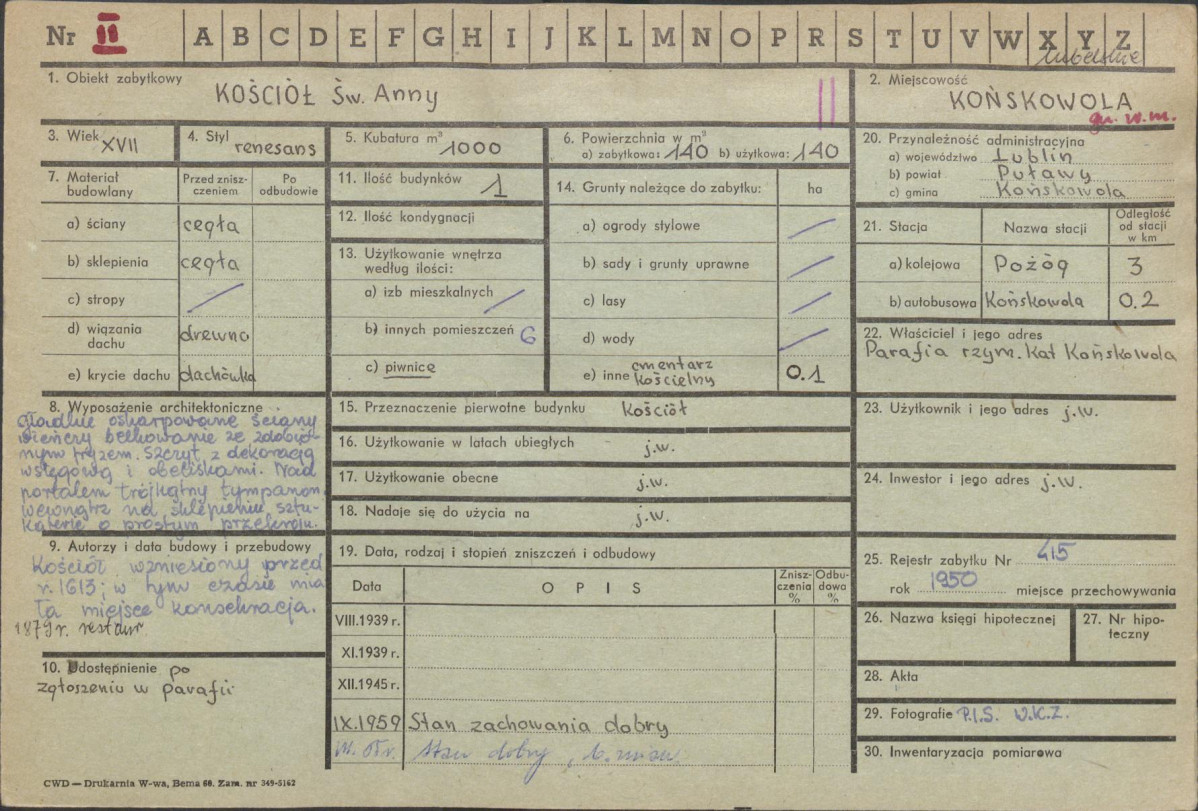 Nr II A B C D E F G H I J K L M N O P R S T U V W X Y Z
lubelskie
1. Obiekt zabytkowy
KOŚCIÓŁ Św. Anny
II
2. Miejscowość
KOŃSKOWOLA
gm. w.m.
3. Wiek XVII
4. Styl renesans
5. Kubatura m³ 1000
6. Powierzchnia w m²
a) zabytkowa: 140 b) użytkowa: 140
7. Materiał budowlany
Przed zniszczeniem
Po odbudowie
a) ściany cegła
b) sklepienia cegła
c) stropy /
d) wiązania dachu drewno
e) krycie dachu dachówka
8. Wyposażenie architektoniczne
gładkie oskarpowane ściany
wieńczy belkowanie ze zdobio-
nym fryzem. Szczyt z dekoracją
wstęgową i obeliskami. Nad
portalem trójkątny tympanon,
wewnątrz na sklepieniu sztu-
katerie o prostym przekroju.
9. Autorzy i data budowy i przebudowy
Kościół wzniesiony przed
r. 1613; w tym czasie mia
ła miejsce konsekracja.
1879 r. restaur
10. Udostępnienie po
zgłoszeniu w parafii
11. Ilość budynków 1
12. Ilość kondygnacji
13. Użytkowanie wnętrza
według ilości:
a) izb mieszkalnych /
b) innych pomieszczeń 6
c) piwnice
14. Grunty należące do zabytku: ha
a) ogrody stylowe /
b) sady i grunty uprawne /
c) lasy /
d) wody /
e) inne cmentarz kościelny 0.1
15. Przeznaczenie pierwotne budynku kościół
16. Użytkowanie w latach ubiegłych j.w.
17. Użytkowanie obecne j.w.
18. Nadaje się do użycia na j.w.
19. Data, rodzaj i stopień zniszczeń i odbudowy
Data OPIS Znisz-czenia % Odbu-dowa %
VIII.1939 r.
XI.1939 r.
XII.1945 r.
IX.1959 Stan zachowania dobry
Stan dobry,
20. Przynależność administracyjna
a) województwo Lublin
b) powiat Puławy
c) gmina Końskowola
21. Stacja Nazwa stacji Odległość od stacji w km
a) kolejowa Pożóg 3
b) autobusowa Końskowola 0.2
22. Właściciel i jego adres
Parafia rzym. Kat Końskowola
23. Użytkownik i jego adres j.w.
24. Inwestor i jego adres j.w.
25. Rejestr zabytku Nr 415
rok 1950 miejsce przechowywania
26. Nazwa księgi hipotecznej
27. Nr hipo-
teczny
28. Akta
29. Fotografie P.I.S. W.K.Z.
30. Inwentaryzacja pomiarowa
CWD — Drukarnia W-wa, Bema 60. Zam. nr 349-5162